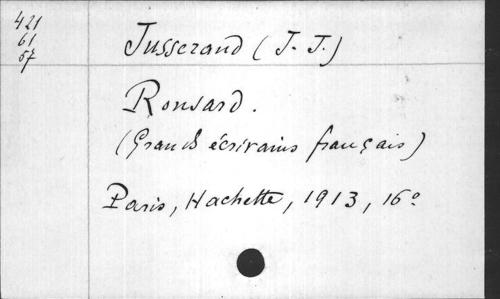 421
61
57
Jusserand (J. J.)
Ronsard.
(Grands écrivains français)
Paris, Hachette, 1913, 16º